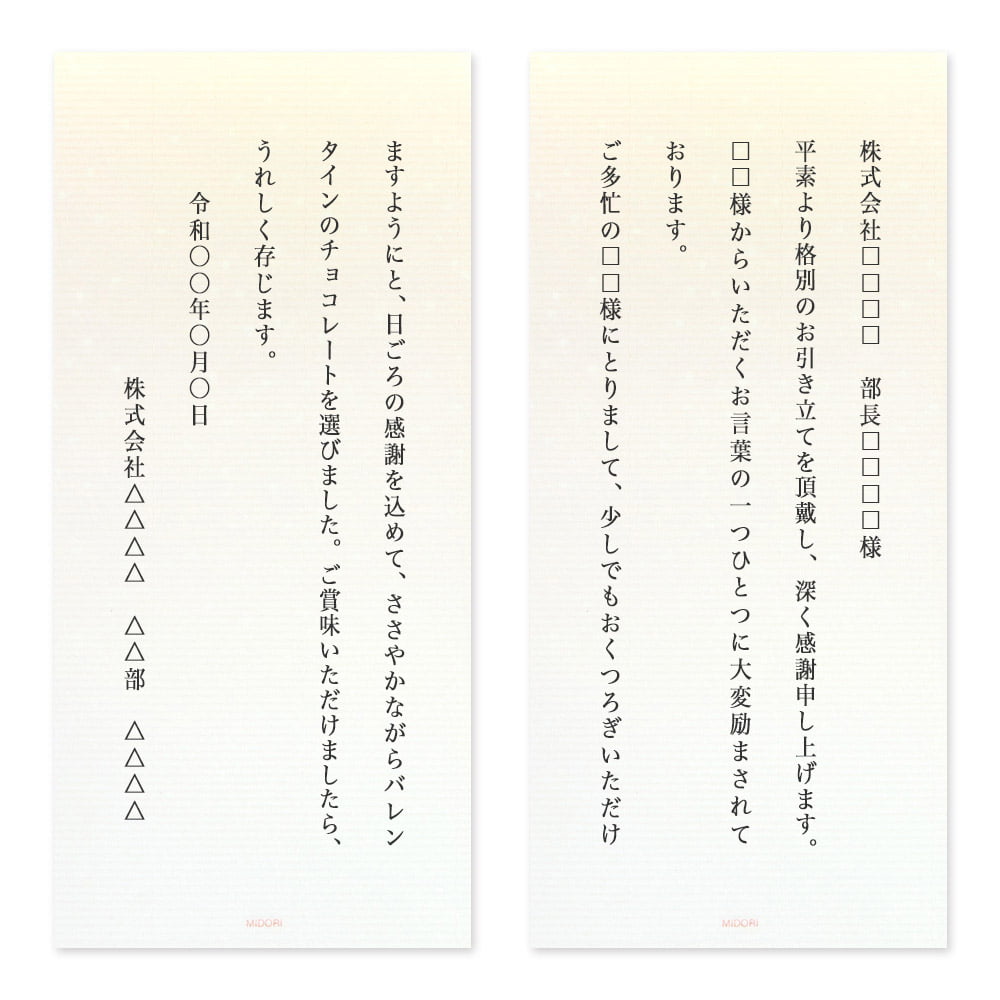 株式会社□□□□　部長□□□□様
平素より格別のお引き立てを頂戴し、深く感謝申し上げます。
□□様からいただくお言葉の一つひとつに大変励まされて
おります。
ご多忙の□□様にとりまして、少しでもおくつろぎいただけ
MIDORI
ますようにと、日ごろの感謝を込めて、ささやかながらバレン
タインのチョコレートを選びました。ご賞味いただけましたら、
うれしく存じます。
令和〇〇年〇月〇日
株式会社△△△△　△△部　△△△△
MIDORI